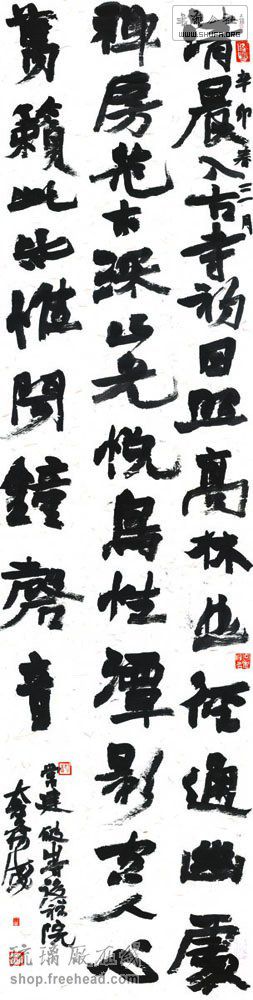 清晨入古寺初日照高林曲徑通幽處
辛卯春三月
禪房花木深山光悦鳥性潭影空人心
萬籟此皆惟聞鐘磬音
常建破山寺後禪院
WWW.SHUFA.ORG
琉璃厂在线
shop.freehead.com